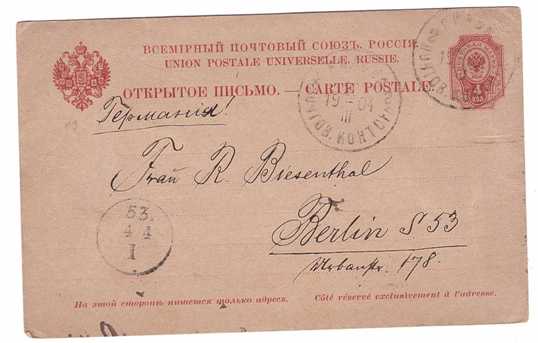 ВСЕМІРНЫЙ ПОЧТОВЫЙ СОЮЗЪ. РОССІЯ.
UNION POSTALE UNIVERSELLE. RUSSIE.
ОТКРЫТОЕ ПИСЬМО. — CARTE POSTALE.
Германія!
19 - 04
III
4
Frau R. Biesenthal
Berlin S 53
Urbanstr. 178.
53.
4 4
I
На этой сторонѣ пишется только адресъ. Côté réservé exclusivement à l'adresse.